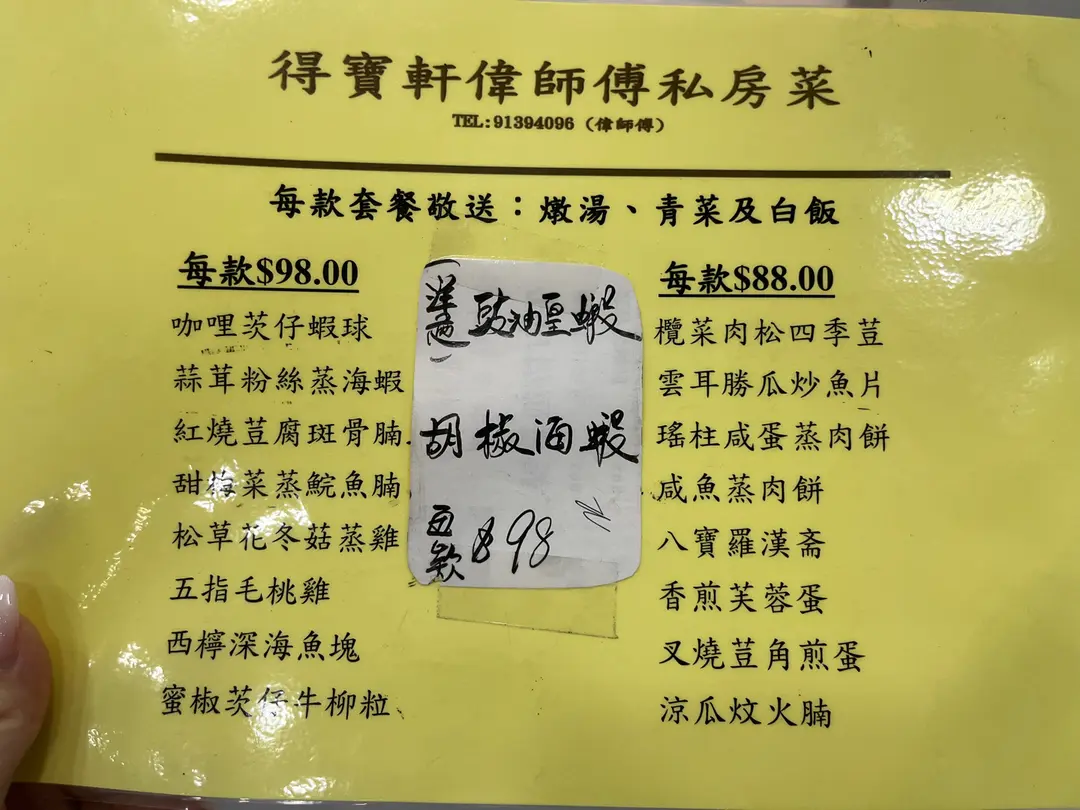 得寶軒偉師傅私房菜
TEL:91394096 (偉師傅)
每款套餐敬送：燉湯、青菜及白飯
每款$98.00
咖哩茨仔蝦球
蒜茸粉絲蒸海蝦
紅燒荳腐斑骨腩
甜梅菜蒸鯇魚腩
松草花冬菇蒸雞
五指毛桃雞
西檸深海魚塊
蜜椒茨仔牛柳粒
豉油皇蝦
胡椒海蝦
$98
每款$88.00
欖菜肉松四季荳
雲耳勝瓜炒魚片
瑤柱咸蛋蒸肉餅
咸魚蒸肉餅
八寶羅漢斋
香煎芙蓉蛋
叉燒荳角煎蛋
涼瓜炆火腩